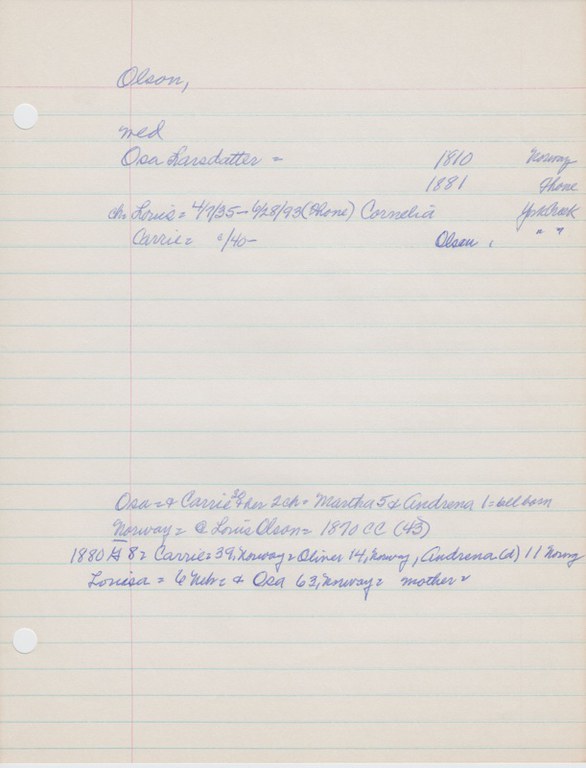 Olson,
med
Osa Larsdatter = 1810 Norway
1881 Ihone
ch. Louis = 4/7/35 - 6/28/93 (Ihone) Cornelia York Creek
Carrie = /40 - Olsen, " "
Osa = & Carrie & her 2 ch = Martha 5 & Andrena 1 = all born
Norway = @ Louis Olson = 1870 CC (43)
1880 8 = Carrie = 39, Norway = Oliver 14, Norway, Andrena (d) 11 Norway
Louisa = 6 Nebr = & Osa 63, Norway = mother